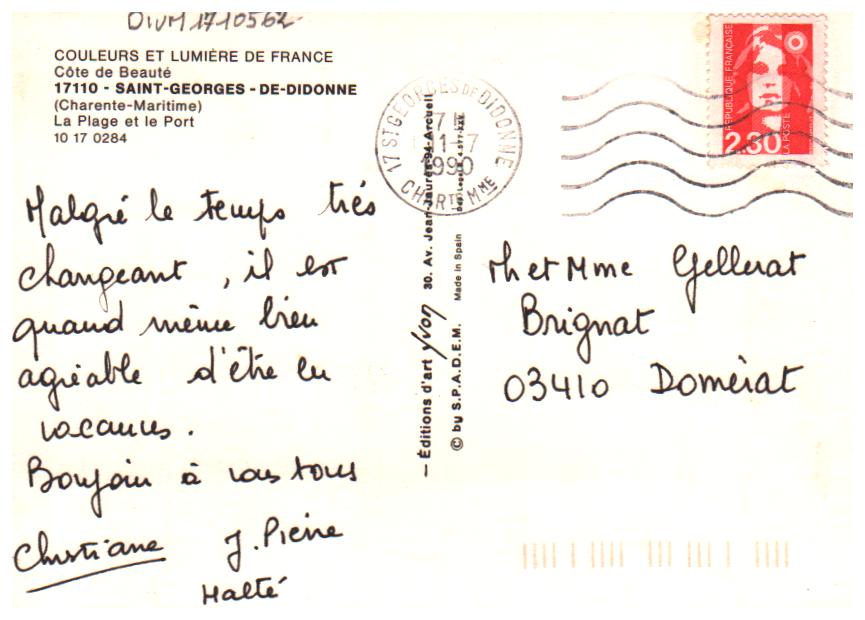 DIVM1710562
COULEURS ET LUMIÈRE DE FRANCE
Côte de Beauté
17110 - SAINT-GEORGES - DE-DIDONNE
(Charente-Maritime)
La Plage et le Port
10 17 0284
Malgré le temps trés
changeant, il est
quand même bien
agréable d'être en
vacances.
Bonjour à vous tous
Christiane J. Pierre
Malté
— Éditions d'art yvon 30. Av. Jean Jaurès-94-Arcueil
© by S.P.A.D.E.M. Made in Spain
17 ST GEORGES DE DIDONNE
1-7
1990
CHARTE MME
RÉPUBLIQUE FRANÇAISE
2,30
LA POSTE
M et Mme Gellerat
Brignat
03410 Domérat